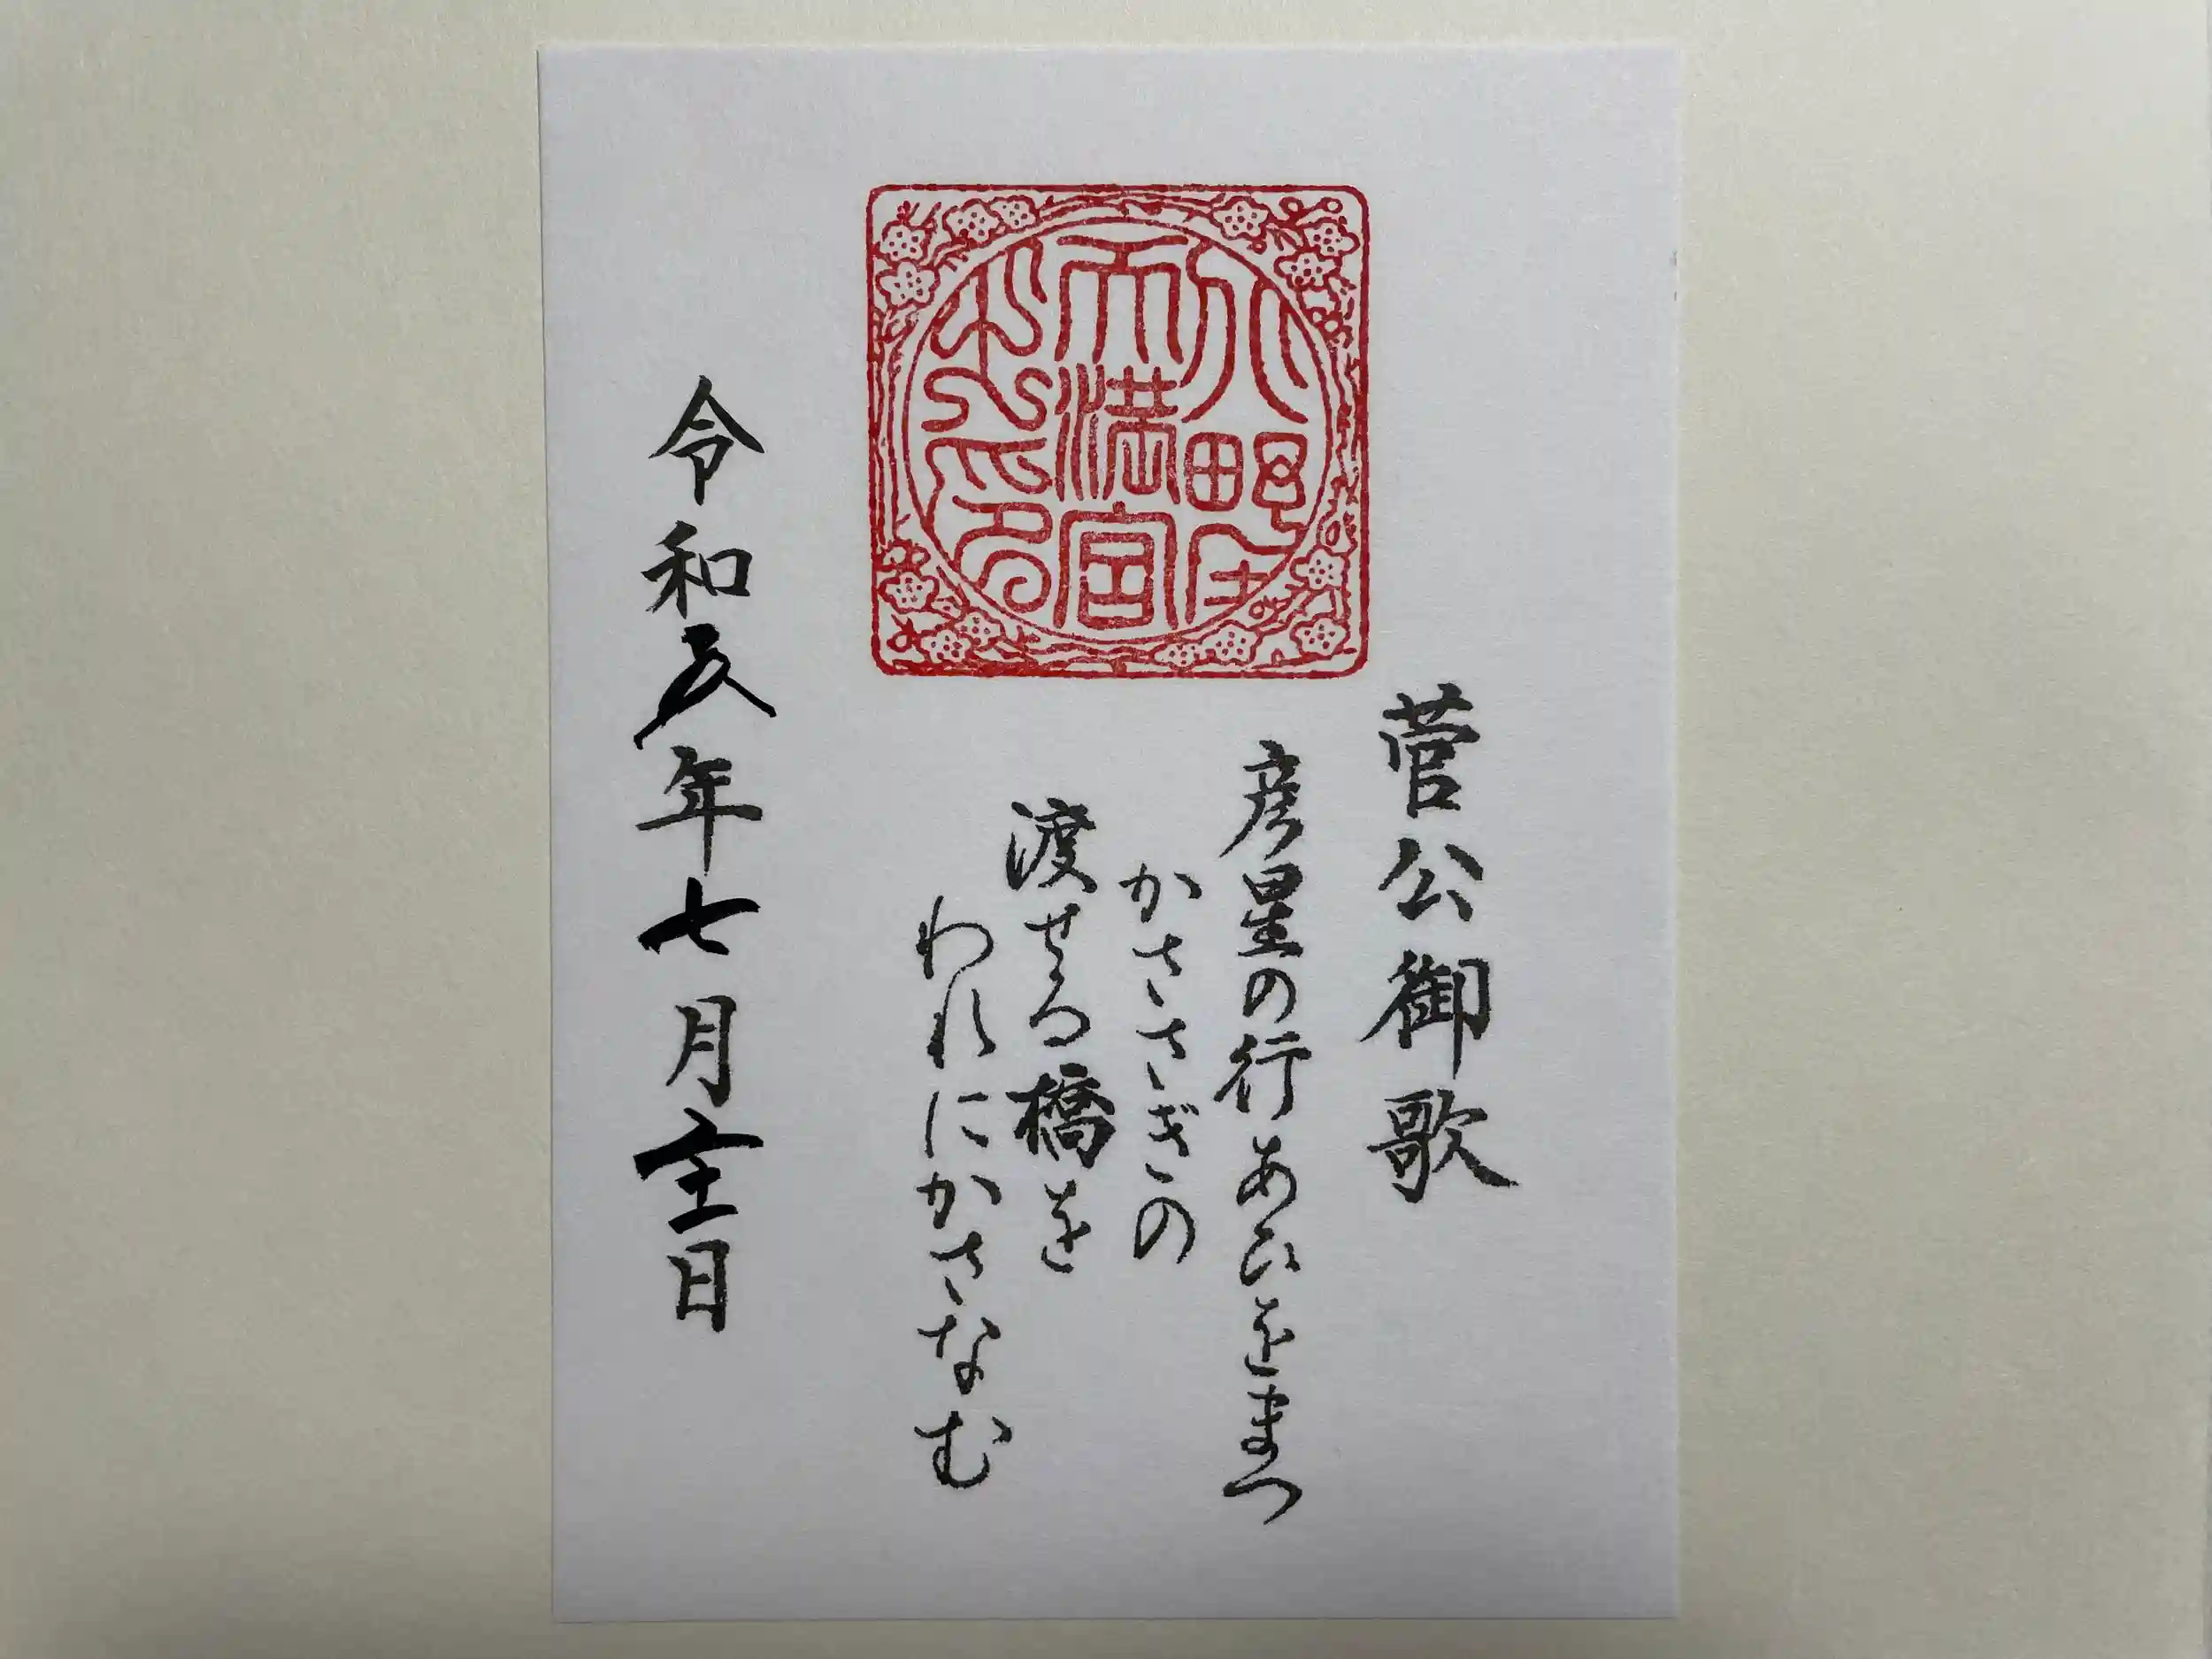 天満宮
菅公御歌
彦星の行あひをまつ
かささぎの
渡せる橋を
われにかさなむ
令和五年七月十二日